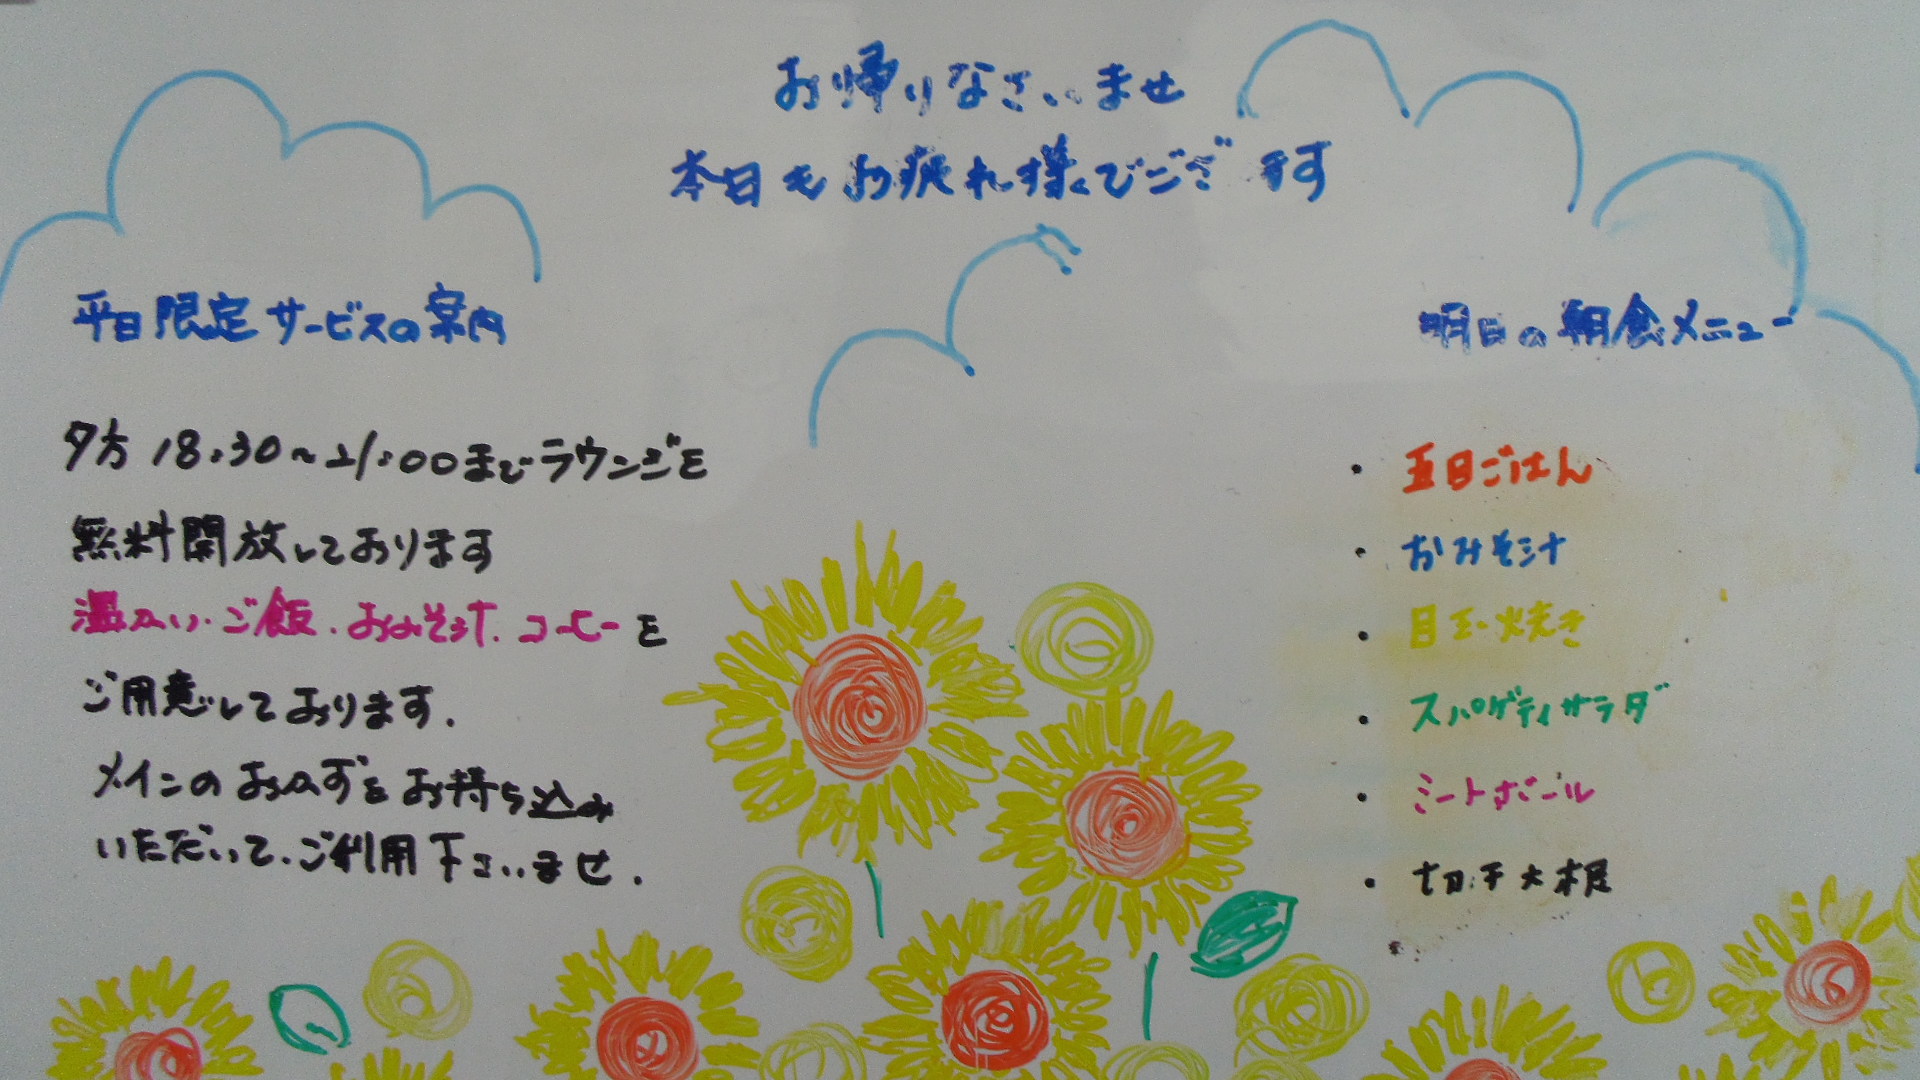 お帰りなさいませ
本日もお疲れ様でございます
平日限定サービスの案内
夕方 18:30〜21:00までラウンジを
無料開放しております
温かい・ご飯・おみそ汁・コーヒーを
ご用意しております.
メインのおかずをお持ち込み
いただいて、ご利用下さいませ.
明日の朝食メニュー
・五目ごはん
・おみそ汁
・目玉焼き
・スパゲティサラダ
・ミートボール
・切干大根